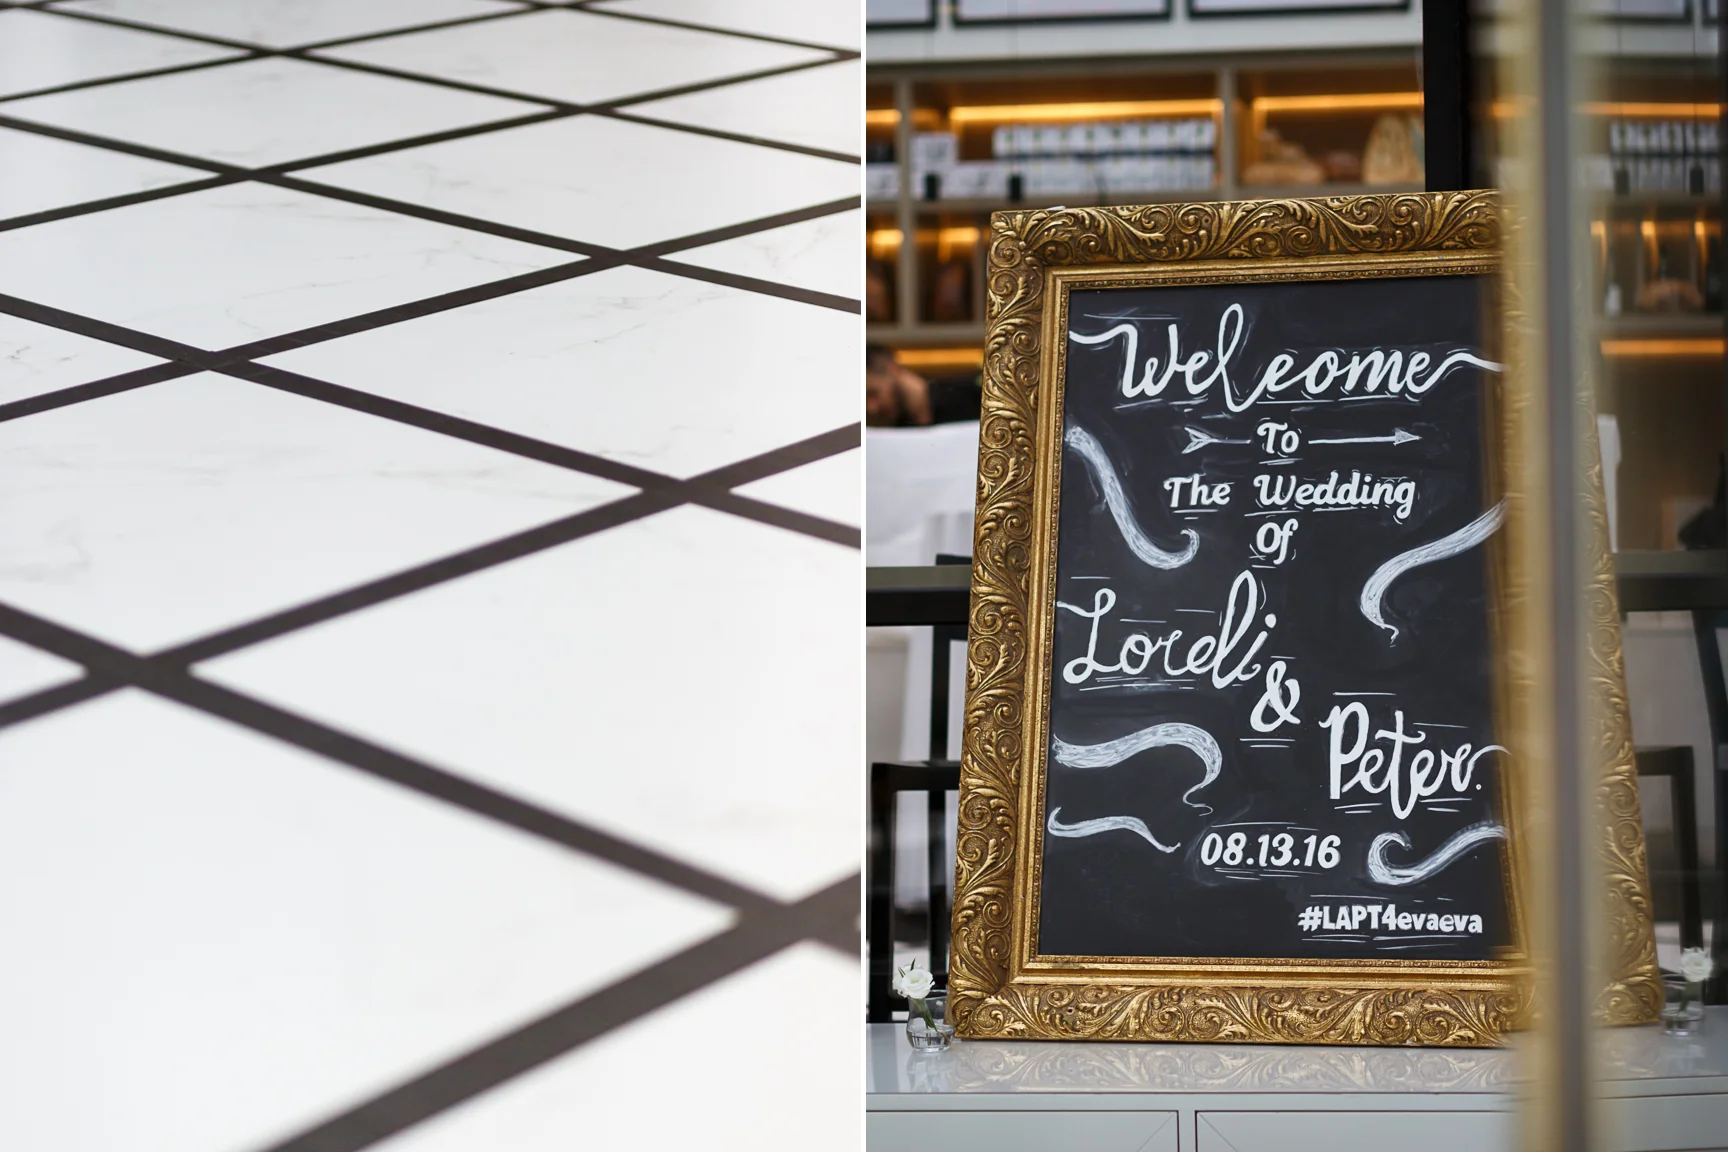 Welcome
To
The Wedding
Of
Loreli
&
Peter.
08.13.16
#LAPT4evaeva